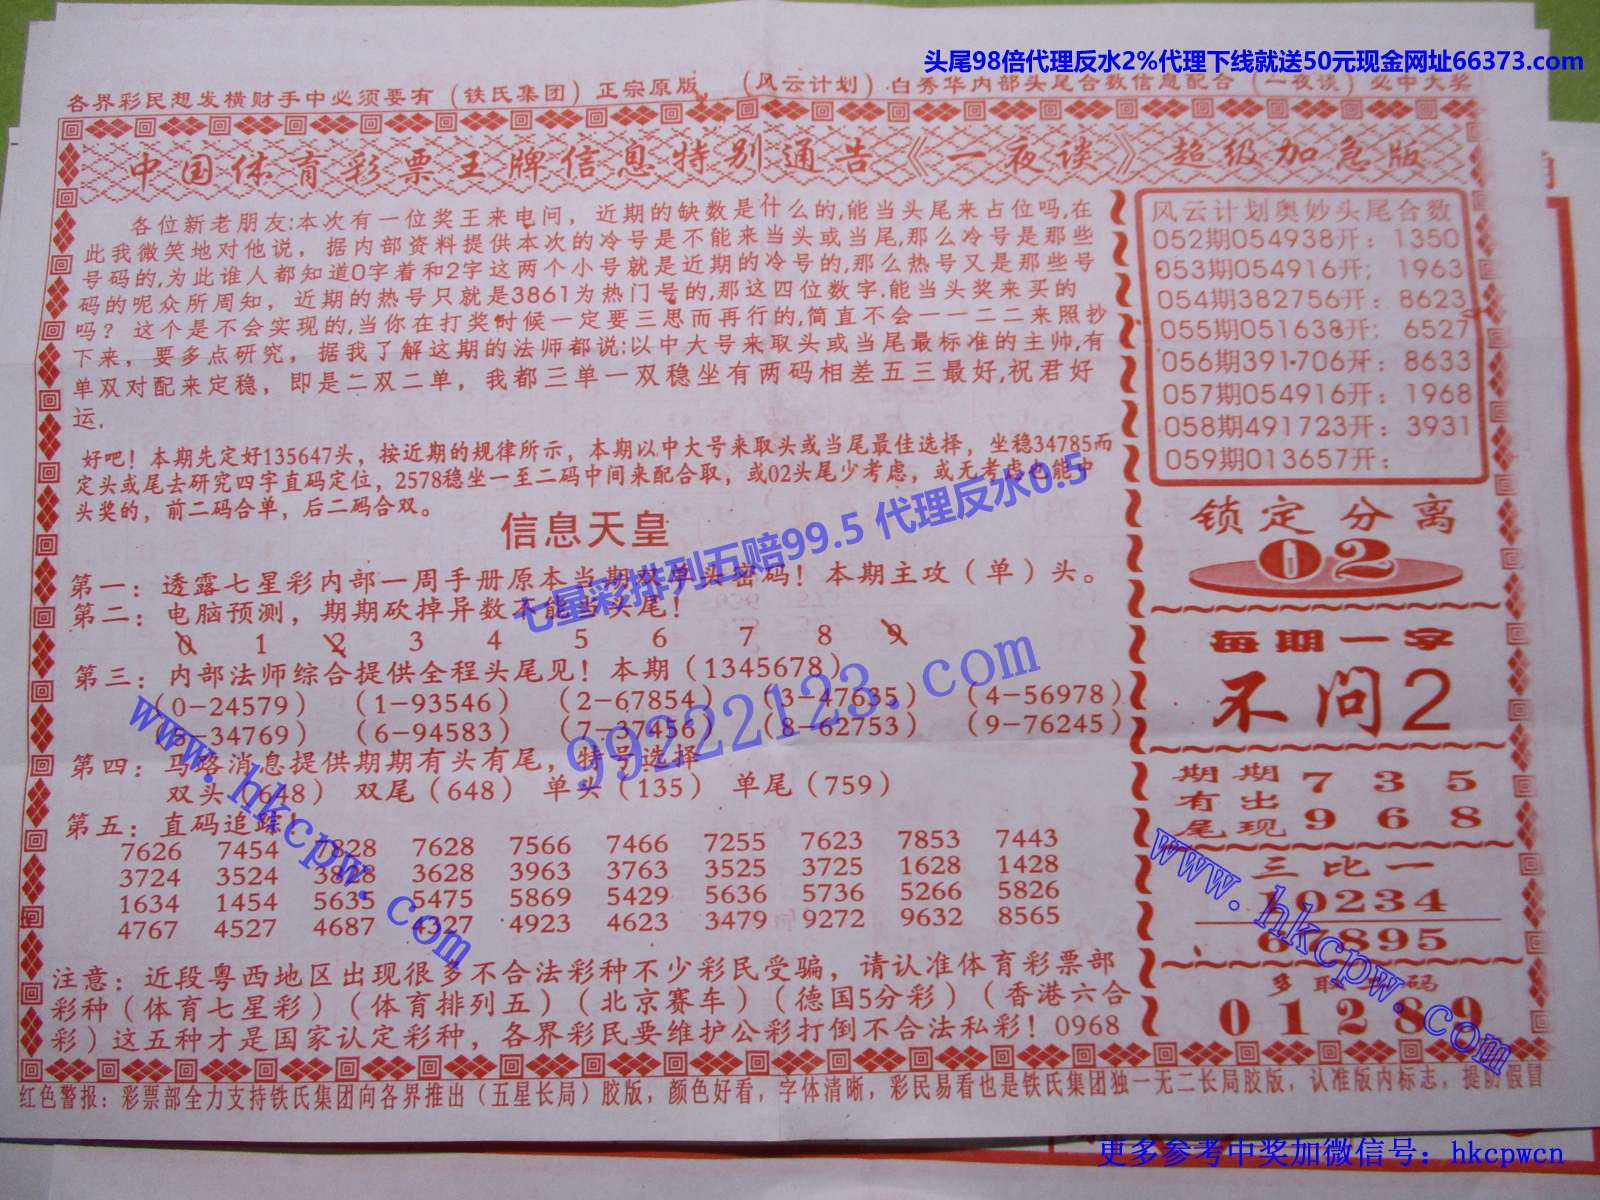 头尾98倍代理反水2%代理下线就送50元现金网址66373.com
各界彩民想发横财手中必须要有（铁氏集团）正宗原版，（风云计划）白秀华内部头尾合数信息配合（一夜谈）必中大奖
中国体育彩票王牌信息特别通告《一夜谈》超级加急版
各位新老朋友:本次有一位奖王来电问，近期的缺数是什么的,能当头尾来占位吗,在
此我微笑地对他说，据内部资料提供本次的冷号是不能来当头或当尾,那么冷号是那些
号码的,为此谁人都知道0字着和2字这两个小号就是近期的冷号的,那么热号又是那些号
码的呢众所周知，近期的热号只就是3861为热门号的,那这四位数字.能当头奖来买的
吗？这个是不会实现的,当你在打奖时候一定要三思而再行的,简直不会一一二二来照抄
下来，要多点研究，据我了解这期的法师都说:以中大号来取头或当尾最标准的主帅,有
单双对配来定稳，即是二双二单，我都三单一双稳坐有两码相差五三最好,祝君好
运.
好吧！本期先定好135647头，按近期的规律所示，本期以中大号来取头或当尾最佳选择，坐稳34785而
定头或尾去研究四字直码定位，2578稳坐一至二码中间来配合取，或02头尾少考虑，或无考虑也能中
头奖的，前二码合单，后二码合双。
信息天皇
第一：透露七星彩内部一周手册原本当期双单头密码！本期主攻（单）头。
第二：电脑预测，期期砍掉异数不能当头尾！
0 1 2 3 4 5 6 7 8 9
第三：内部法师综合提供全程头尾见！本期（1345678）
（0-24579）（1-93546）（2-67854）（3-47635）（4-56978）
（5-34769）（6-94583）（7-37456）（8-62753）（9-76245）
第四：马路消息提供期期有头有尾，特号选择
双头（648） 双尾（648） 单头（135） 单尾（759）
第五：直码追踪！
7626 7454 7828 7628 7566 7466 7255 7623 7853 7443
3724 3524 3828 3628 3963 3763 3525 3725 1628 1428
1634 1454 5635 5475 5869 5429 5636 5736 5266 5826
4767 4527 4687 4327 4923 4623 3479 9272 9632 8565
注意：近段粤西地区出现很多不合法彩种不少彩民受骗，请认准体育彩票部
彩种（体育七星彩）（体育排列五）（北京赛车）（德国5分彩）（香港六合
彩）这五种才是国家认定彩种，各界彩民要维护公彩打倒不合法私彩！0968
风云计划奥妙头尾合数
052期054938开：1350
053期054916开；1963
054期382756开：8623
055期051638开；6527
056期391706开：8633
057期054916开：1968
058期491723开：3931
059期013657开：
锁定分离
02
每期一字
不问2
期期 7 3 5
有出
尾现 9 6 8
三比一
10234
67895
多取码
01289
红色警报：彩票部全力支持铁氏集团向各界推出（五星长局）胶版，颜色好看，字体清晰，彩民易看也是铁氏集团独一无二长局胶版，认准版内标志，提防假冒
七星彩排列五赔99.5 代理反水0.5
99222123.com
www.hkcpw.com
www.hkcpw.com
更多参考中奖加微信号：hkcpwcn